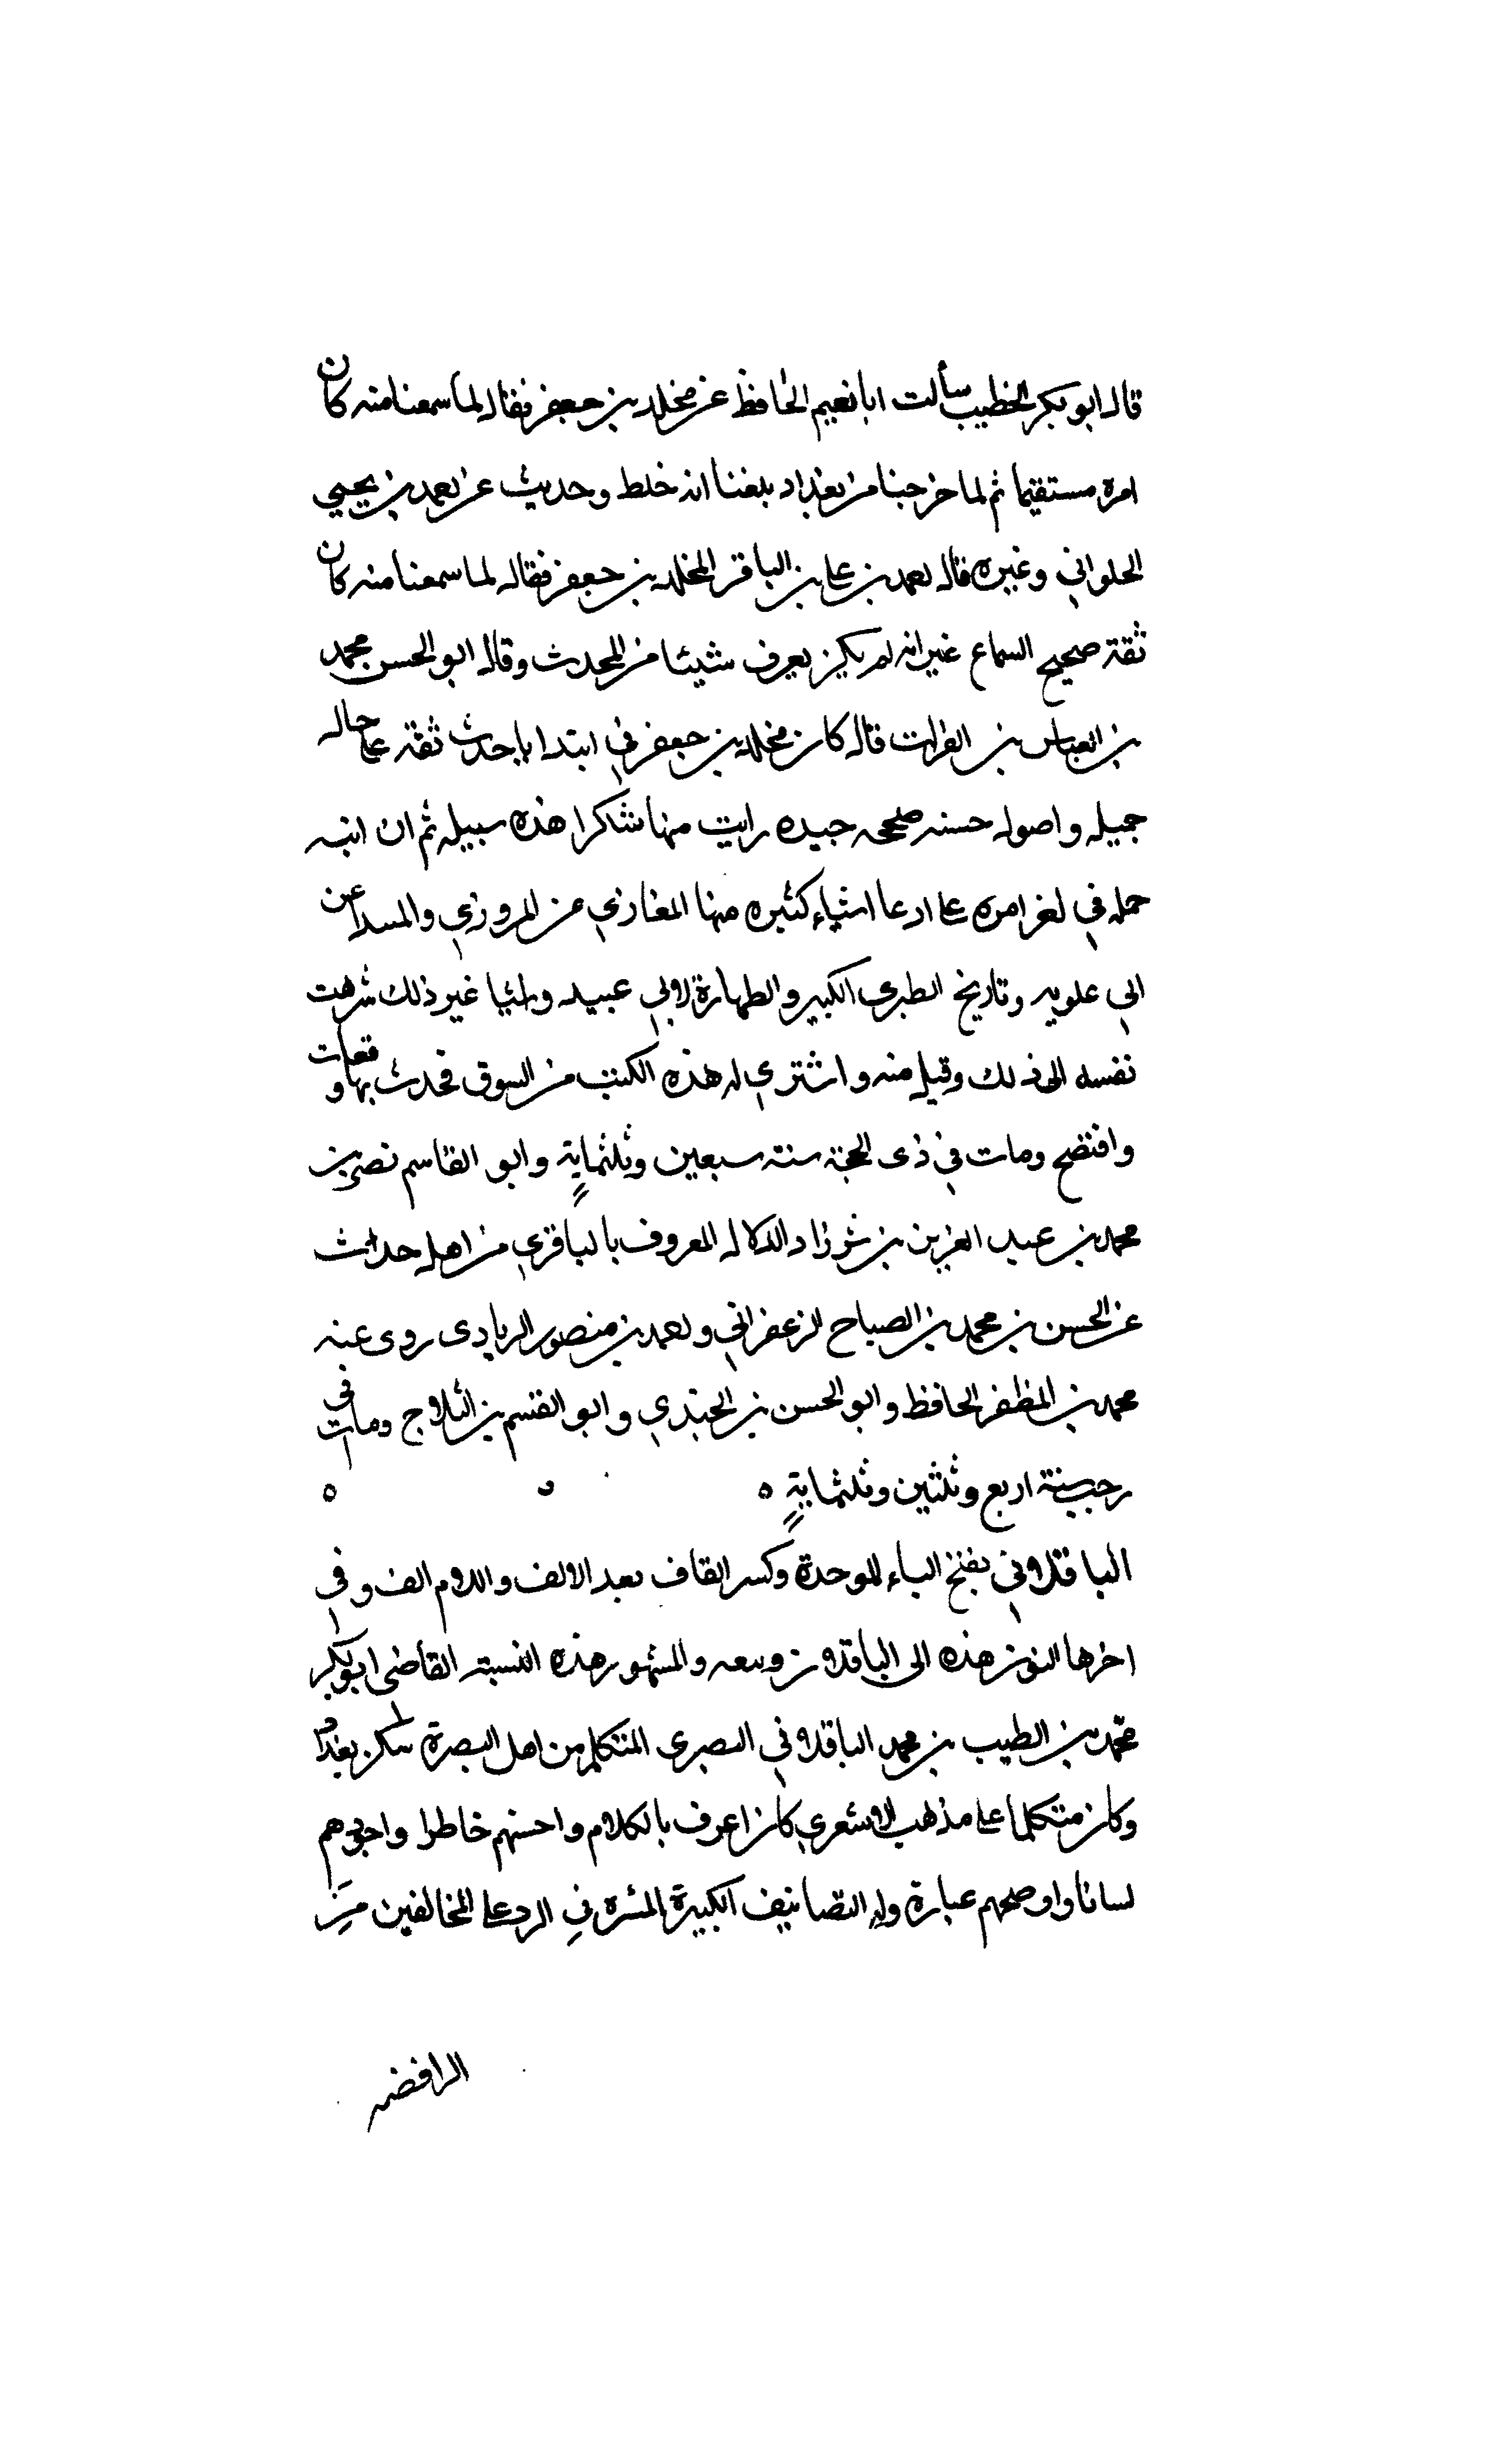 قال ابو بكر الخطيب سألت ابا نعيم الحافظ عن مخلد بن جعفر فقال لما سمعنا منه كان
امره مستقيما ثم لما خرجنا من بغداد بلغنا انه خلط وحديث عن احمد بن يحيي
الحلواني وغيره قال احمد بن علي بن الباقر المخلد بن جعفر فقال لما سمعنا منه كان
ثقة صحيح السماع غير انه لم يكن يعرف شيئا من المحدث وقال ابو الحسن محمد
بن العباس بن الفرات قال كان مخلد بن جعفر في ابتدا باحدث ثقة على حاله
جميله واصوله حسنه صحيحه جيده رايت منها شكرا هذه سبيله ثم ان ابنه
حمله في اخر امره على ادعا اشياء كثيره منها المغازي عن المروزي والمسدا عن
ابي علويه وتاريخ الطبري الكبير والطهارة لابي عبيد واشيا غير ذلك شرهت
نفسه الى ذلك وقبل منه واشتري له هذه الكتب من السوق فحدث بها و
وافتضح ومات في ذي الحجة سنة سبعين وثلثماية وابو القاسم نصر بن
محمد بن عبد العزيز بن شيرزاد الدلال المعروف بالباقري من اهل حداث
عن الحسن بن محمد بن الصباح الزعفراني واحمد بن منصور الزيادي روى عنه
محمد بن المظفر الحافظ وابو الحسن بن الجندي وابو القسم بن الثلاج ومات في
رجب سنة اربع وثلثين وثلثماية ه
الباقلاني بفتح الباء الموحدة وكسر القاف بعد الالف واللام الف وفي
اخرها النون هذه الى الباقلا وبيعه والمشهور بهذه النسبة القاضي ابو بكر
محمد بن الطيب بن محمد الباقلاني البصري المتكلم من اهل البصرة سكن بغداد
وكان متكلما على مذهب الاشعري كان اعرف بالكلام واحسنهم خاطرا واجودهم
لسانا واوضحهم عبارة وله التصانيف الكبيرة المنتشره في الرد على المخالفين من
الرافضه